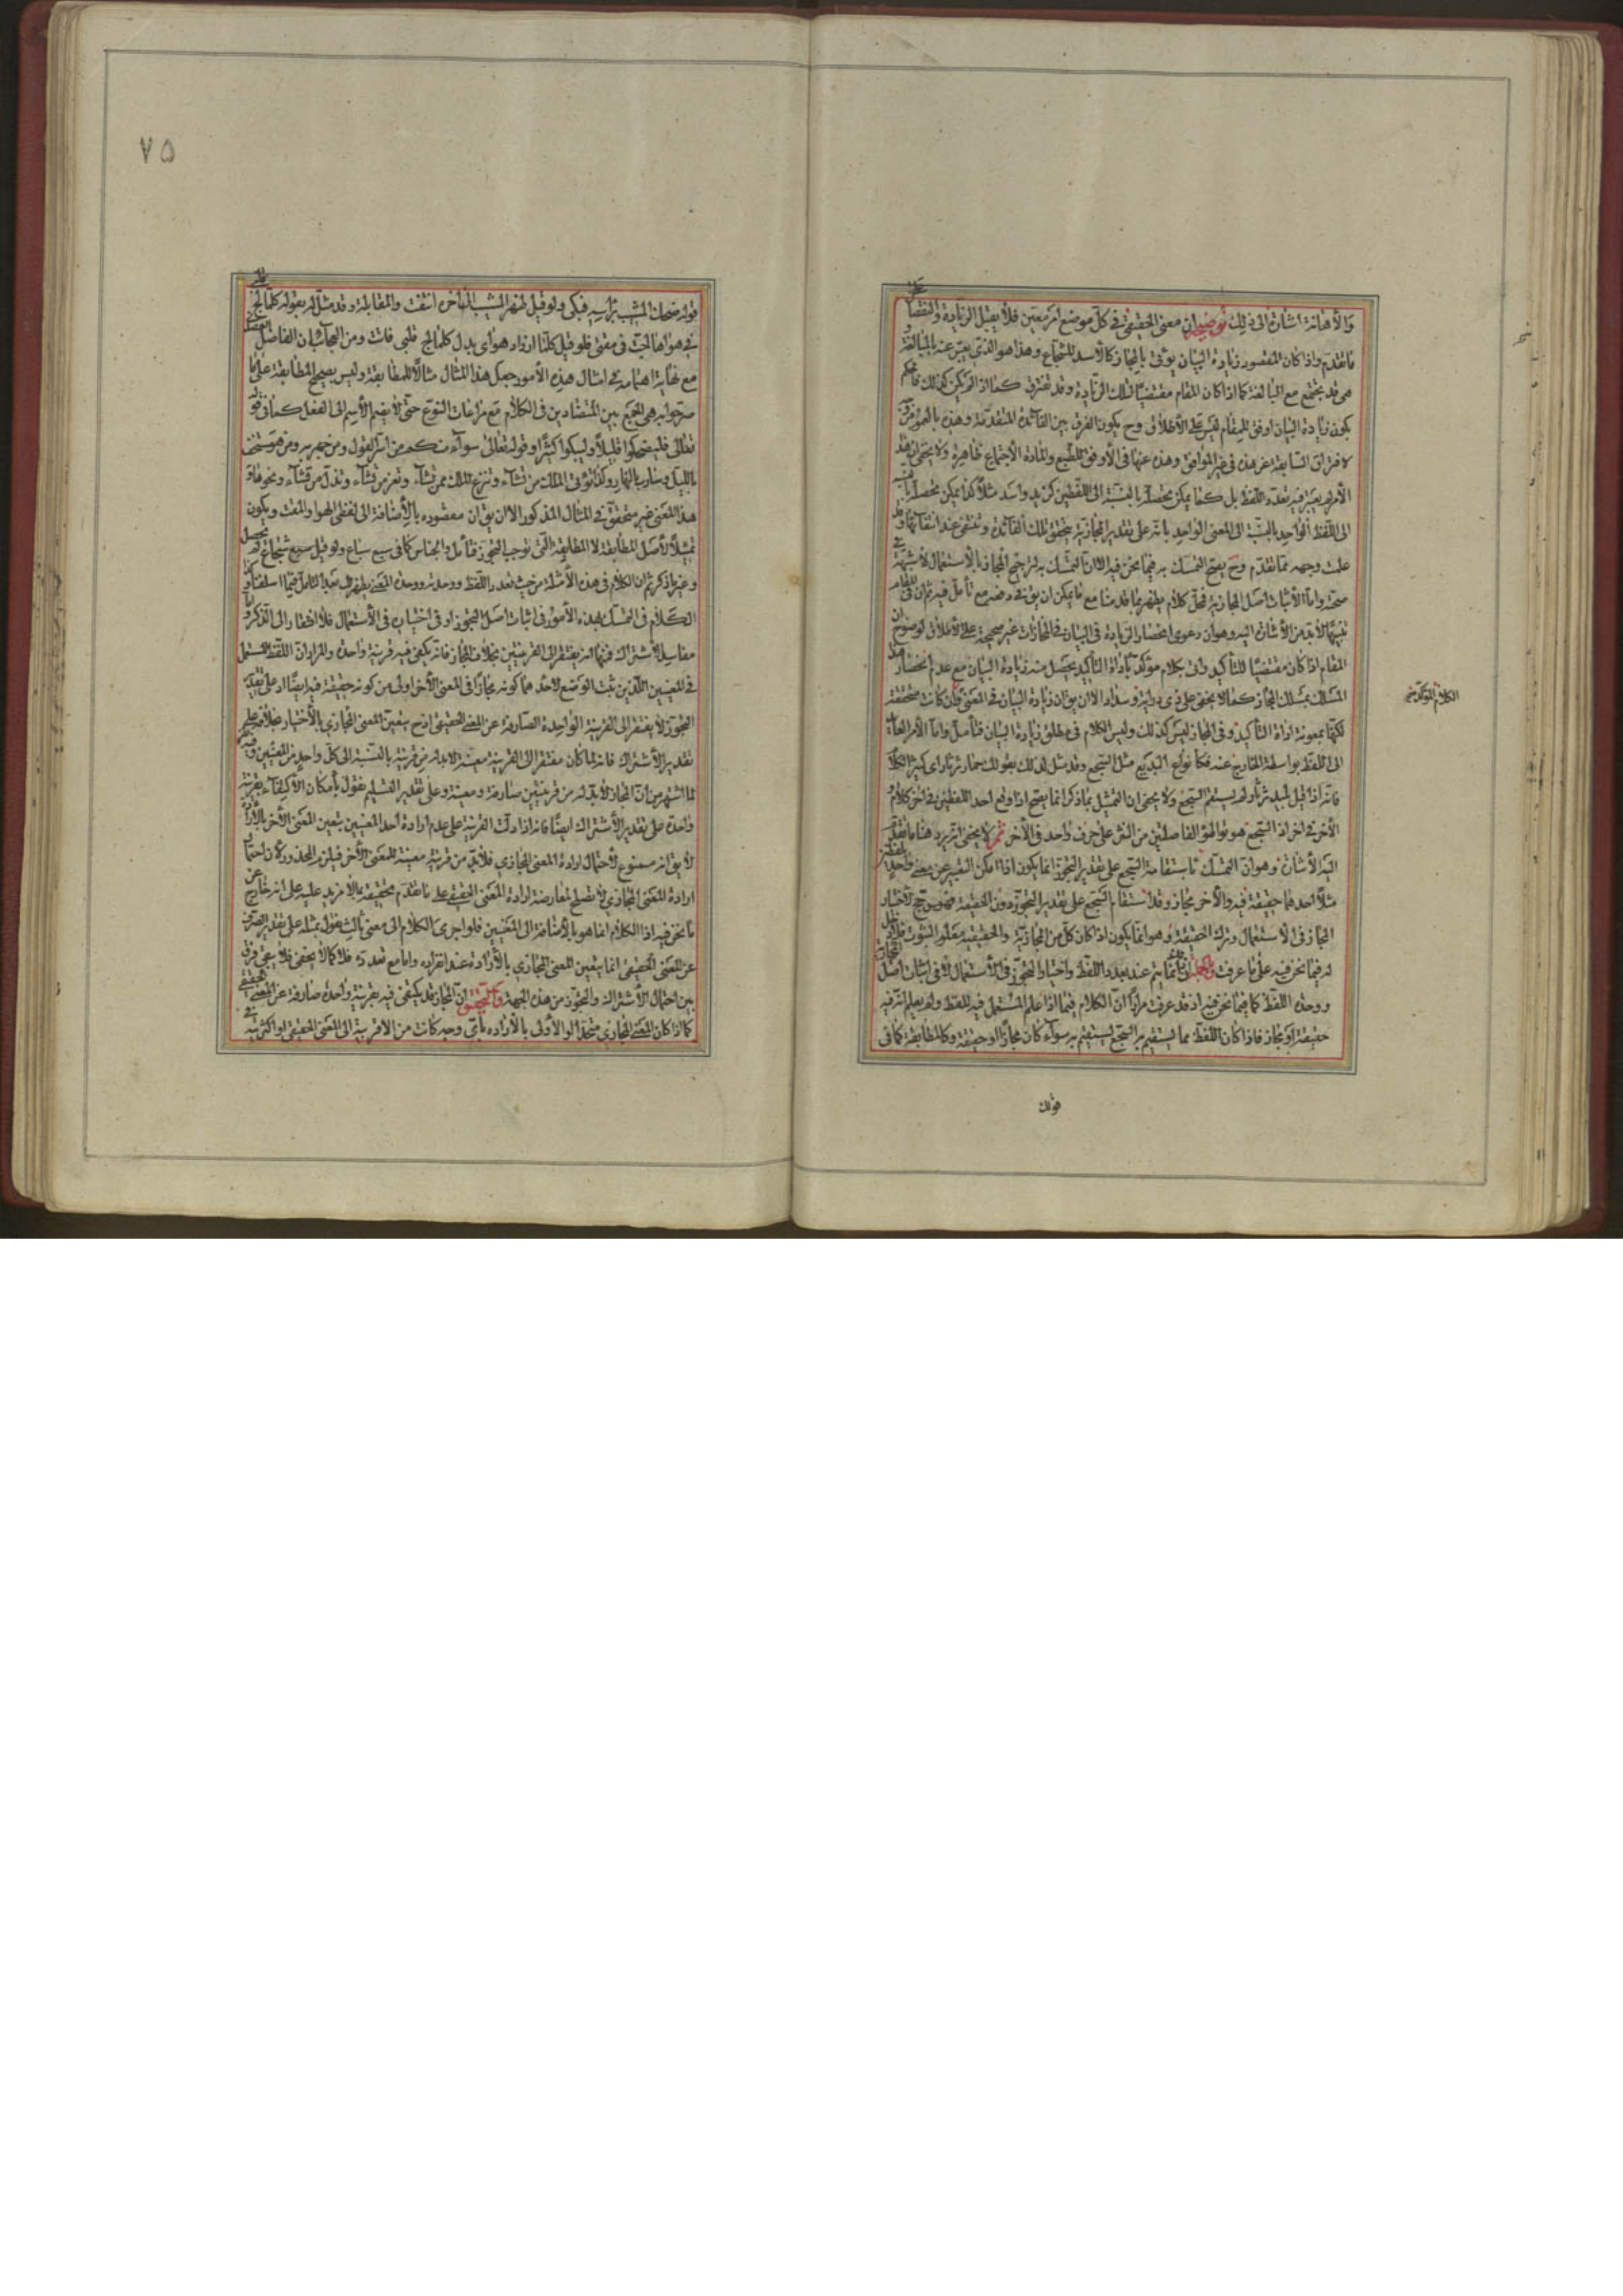 والأهانة اشارة الى ذلك توضيحه ان معنى الحقيقى فى كل موضع امر معين فلا يقبل الزيادة والنقصان على
ما تقدم واذا كان المقصود زيادة البيان يؤتى بالمجاز كالاسد للشجاع وهذا هو الذى يعبر عنه بالمبالغة و
هى قد يجتمع مع المبالغة كما اذا كان المقام مقتضيا لتلك الزيادة وقد تفترق كما اذا لم يكن كذلك فالحكم
بكون زيادة البيان اوفق للمقام ليس على الاطلاق وح يكون الفرق بين الفائدة المتقدمة وهذه بالعموم من وجه
لافتراق السابقة عن هذه فى غير الموافق وهذه عنها فى الأوفق للطبع والمادة الاجتماع ظاهرة ولا يخفى ان هذا
الأمر لا يعتبر فيه تعدد اللفظ بل كما يمكن تحصله بالنسبة الى اللفظين كزيد واسد مثلا كذا يمكن تحصله بالنسبة
الى اللفظ الواحد بالنسبة الى المعنى الواحد بانه على تقدير المجازية يتحقق تلك الفائدة وتنتفى عند انتفائها وقد
علمت وجهه مما تقدم وح يصح التمسك به فيما نحن فيه اذ التمسك به لترجيح المجاز بالاستعمال لا شبهة فى
صحته واما لاثبات اصل المجازية فمحل كلام يظهر مما قدمنا مع ما يمكن ان يق فى دفعه مع تأمل فيه ثم ان فى المقام
تنبيها لابد من الأشارة اليه وهو ان دعوى انحصار الزيادة فى البيان فى المجازات غير صحيحة على الاطلاق لوضوح ان
المقام اذا كان مقتضيا للتأكيد واتى بكلام مؤكد باداة التأكيد يحصل منه زيادة البيان مع عدم انحصار هذا
المسلك بمسلك المجاز كما لا يخفى على ذى دراية وسداد الا ان يق ان زيادة البيان فى المعنى فان كانت متحققة
لكنها بمعونة اداة التأكيد وفى المجاز ليس كذلك وليس الكلام فى مطلق زيادة البيان فتأمل واما الأمر العايد
الى اللفظ بواسطة الخارج عنه فكأنواع البديع مثل السجع وقد مثل لذلك بقولك حمار ثرثار اى كثير الكلام
فانه اذا قيل بليد ثرثار لم يستقم السجع ولا يخفى ان التمثيل بما ذكر انما يصح اذا وقع احد اللفظين فى اخر كلام و
الآخر فى اخر اذ السجع هو تواطؤ الفاصلتين من النثر على حرف واحد فى الآخر ثم لا يخفى انه يرد هنا ما تقدم
اليه الأشارة وهو ان التمسك باستقامة السجع على تقدير التجوز انما يكون اذا امكن التعبير عن معنى واحد بلفظين
مثلا احدهما حقيقة فيه والآخر مجاز وقد استقام السجع على تقدير التجوز دون الحقيقة فهو مرجح لاختيار
المجاز فى الاستعمال وترك الحقيقة وهو انما يكون اذا كان كل من المجازية والحقيقية معلوم الثبوت فلا دخل
له فيما نحن فيه على ما عرفت وبالجملة انما يتم عند تعدد اللفظ واختيار التجوز فى الاستعمال لا فى اثبات اصل المجازية
ووحدة اللفظ كما فيما نحن فيه اذ قد عرفت مرارا ان الكلام فيما اذا علم المستعمل فيه للفظ ولم يعلم انه فيه
حقيقة او مجاز فاذا كان اللفظ مما يستقيم به السجع يستقيم به سواء كان مجازا او حقيقة وكالمطابقة كما فى
الكلام المؤكد
قوله
٧٥
قوله ضحك المشيب برأسه فبكى ولو قيل ظهر المشيب انتفت والمقابلة وقد مثل له بقوله كلما لج قلبى
فى هواها لجت فى مقتى فلو قيل كلما ازداد هواى بدل كلما لج قلبى فات ومن العجائب ان الفاضل
مع نهاية اهتمامه فى امثال هذه الأمور جعل هذا المثال مثالا للمطابقة وليس بصحيح المطابقة على ما
صرحوا به هى الجمع بين المتضادين فى الكلام مع مراعات النوع حتى لا يضم الاسم الى الفعل كما فى قوله
تعالى فليضحكوا قليلا وليبكوا كثيرا وقوله تعالى سواء منكم من اسر القول ومن جهر به ومن هو مستخف
بالليل وسارب بالنهار وكذا تؤتى الملك من تشاء وتنزع الملك ممن تشاء وتعز من تشاء وتذل من تشاء ونحوها و
هذا المعنى غير متحقق فى المثال المذكور الا ان يق ان مقصوده بالأضافة الى لفظى الهوا والمقت ويكون
تمثيلا لأصل المطابقة لا المطابقة التى توجب التجوز فتأمل والجناس كما فى سبع سباع ولو قيل سبع شجاع لم يحصل
وغير ما ذكر ثم ان الكلام فى هذه الأمثلة من حيث تعدد اللفظ ووحدته ووحدة المعنى يظهر لك بعد التأمل فيما اسلفنا وكذا
الكلام فى التمسك بهذه الأمور فى اثبات اصل التجوز او فى اختياره فى الأستعمال فلا افتقار الى الذكر واما
مفاسد الأشتراك فمنها انه يفتقر الى القرينتين بخلاف المجاز فانه يكفى فيه قرينة واحدة والمراد ان اللفظ المستعمل
فى المعنيين اللذين ثبت الوضع لأحدهما كونه مجازا فى المعنى الآخر اولى من كونه حقيقة فيه ايضا اذ على تقدير
التجوز لا يفتقر الى القرينة الواحدة الصارفة عن المعنى الحقيقى اذ ح يتعين المعنى المجازى بالأختيار بخلافه على
تقدير الأشتراك فانه لما كان مفتقرا الى القرينة معينة لابد له من قرينة بالنسبة الى كل واحد من المعنيين وفيه
لما اشتهر من ان المجاز لا بد له من قرينتين صارفة ومعينة وعلى تقدير التسليم نقول بأمكان الاكتفاء بقرينة
واحدة على تقدير الأشتراك ايضا فانه اذا دلت القرينة على عدم ارادة احد المعنيين يتعين المعنى الآخر بالأرادة
لا يق انه ممنوع لأحتمال ارادة المعنى المجازى فلابد من قرينة معينة للمعنى الآخر فيلزم المحذور لأن احتمال
ارادة المعنى المجازى لا تصلح لمعارضة ارادة المعنى الحقيقى على ما تقدم تحقيقه بما لا مزيد عليه على انه خارج عن
ما نحن فيه اذ الكلام انما هو بالأضافة الى المعنيين فلو اجرى الكلام الى معنى ثالث نقول بمثله على تقدير الصرف
عن المعنى الحقيقى انما يتعين المعنى المجازى بالأرادة عند انفراده واما مع تعدده فلا كما لا يخفى فلا يبقى فرق
بين احتمال الأشتراك والتجوز من هذه الجهة والتحقيق ان المجاز قد يكتفى فيه بقرينة واحدة صارفة عن المعنى الحقيقى
كما اذا كان المعنى المجازى متحدا او الأولى بالأرادة بأى وجه كانت من الأقربية الى المعنى الحقيقى او اكثرية فى